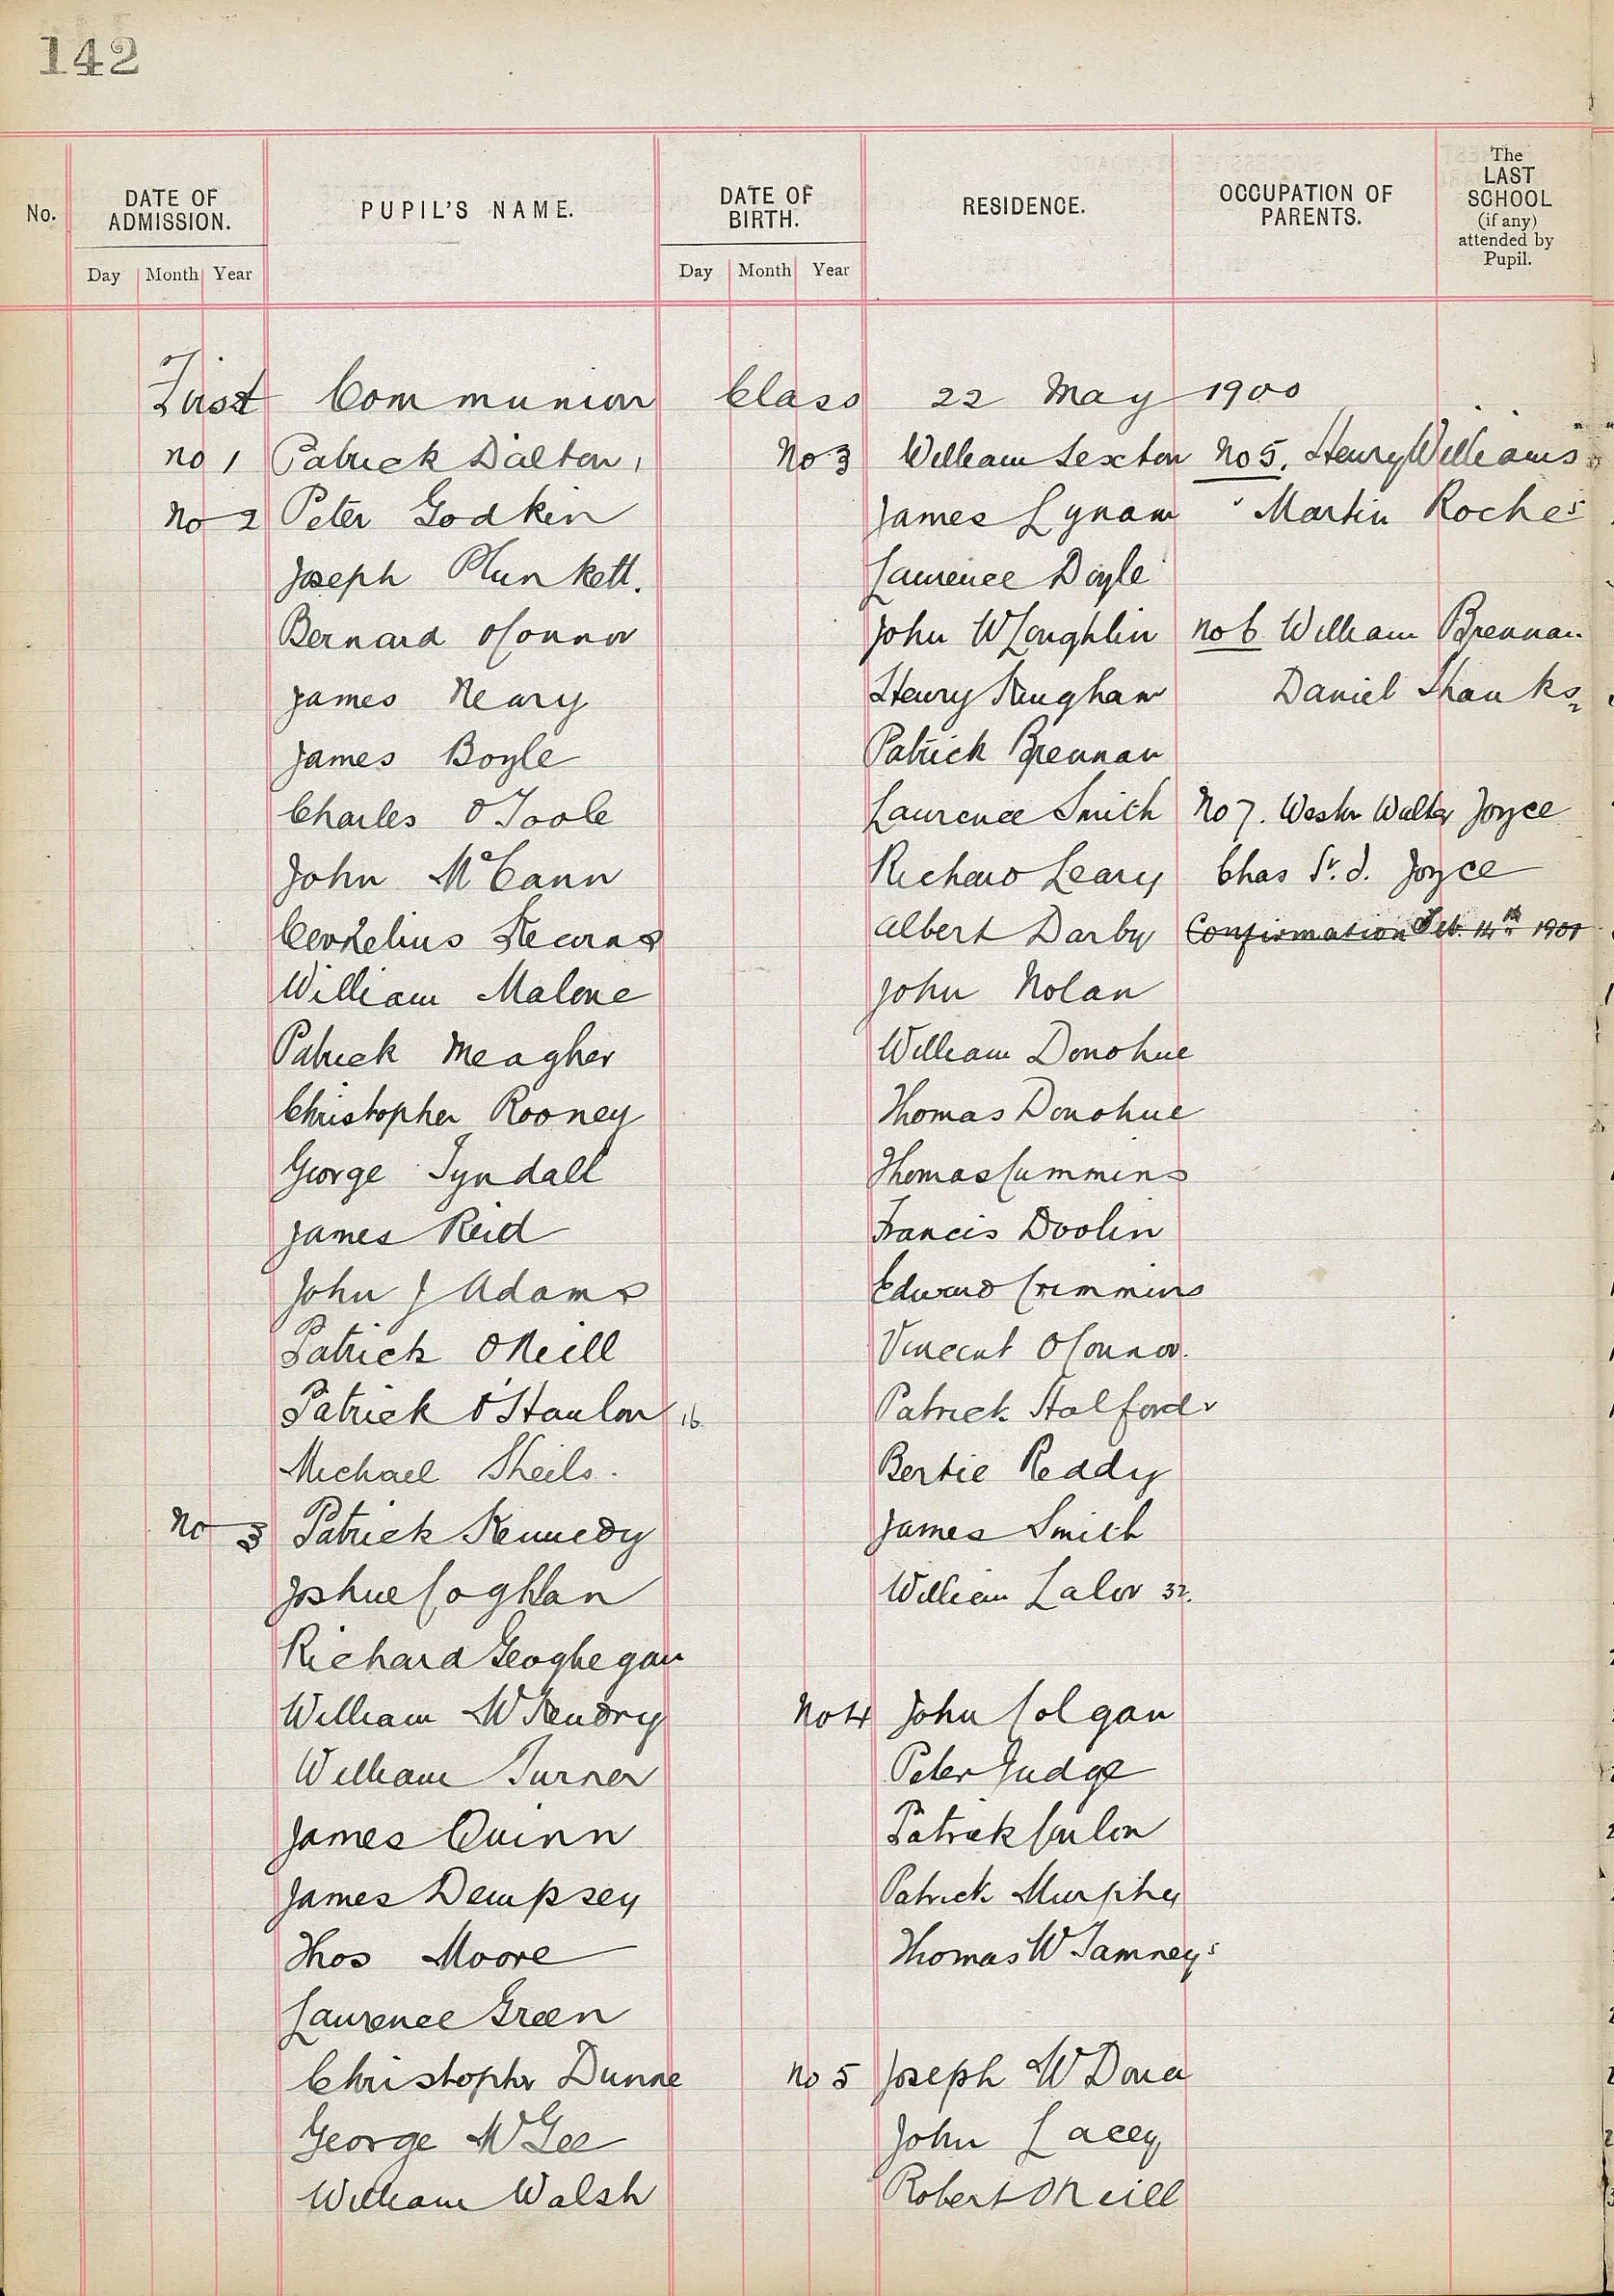 142
No.
DATE OF ADMISSION.
Day Month Year
PUPIL'S NAME.
DATE OF BIRTH.
Day Month Year
RESIDENCE.
OCCUPATION OF PARENTS.
The LAST SCHOOL (if any) attended by Pupil.
First Communion Class 22 May 1900
No 1 Patrick Dalton 1
No 2 Peter Godkin
Joseph Plunkett.
Bernard OConnor
James Neary
James Boyle
Charles O'Toole
John McCann
Cornelius Kearns
William Malone
Patrick Meagher
Christopher Rooney
George Tyndall
James Reid
John J Adams
Patrick O'Neill
Patrick O'Hanlon 16
Michael Sheils.
No 3 Patrick Kennedy
Joshue Coghlan
Richard Geoghegan
William McKendry
William Turner
James Quinn
James Dempsey
Thos Moore
Laurence Green
Christopher Dunne
George McGee
William Walsh
No 3 William Sexton
James Lynam
Laurence Doyle
John McLoughlin
Henry Kingham
Patrick Brennan
Laurence Smith
Richard Leary
Albert Darby
John Nolan
William Donohue
Thomas Donohue
Thomas Cummins
Francis Doolin
Edward Crimmins
Vincent OConnor.
Patrick Halford
Bertie Reddy
James Smith
William Lalor 32.
No 4 John Colgan
Peter Judge
Patrick Conlon
Patrick Murphy
Thomas McTamney 5
No 5 Joseph McDona
John Lacey
Robert ONeill
No 5. Henry Williams
Martin Roche
No 6 William Brennan
Daniel Shanks 2
No 7. Walter Joyce
Chas St. J. Joyce
Confirmation Feb. 14th 1901